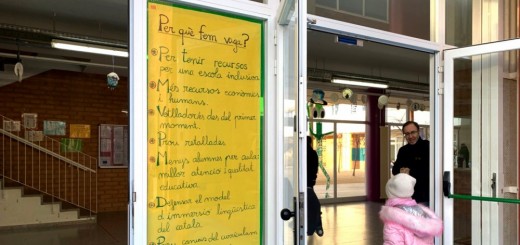 Per què fem vaga?
Per tenir recursos
per una escola inclusiva
Més recursos econòmics
i humans.
Vetlladores des del primer
moment.
Prou retallades
Menys alumnes per aula:
millor atenció i qualitat
educativa.
Defensar el model
d'immersió lingüística
del català.